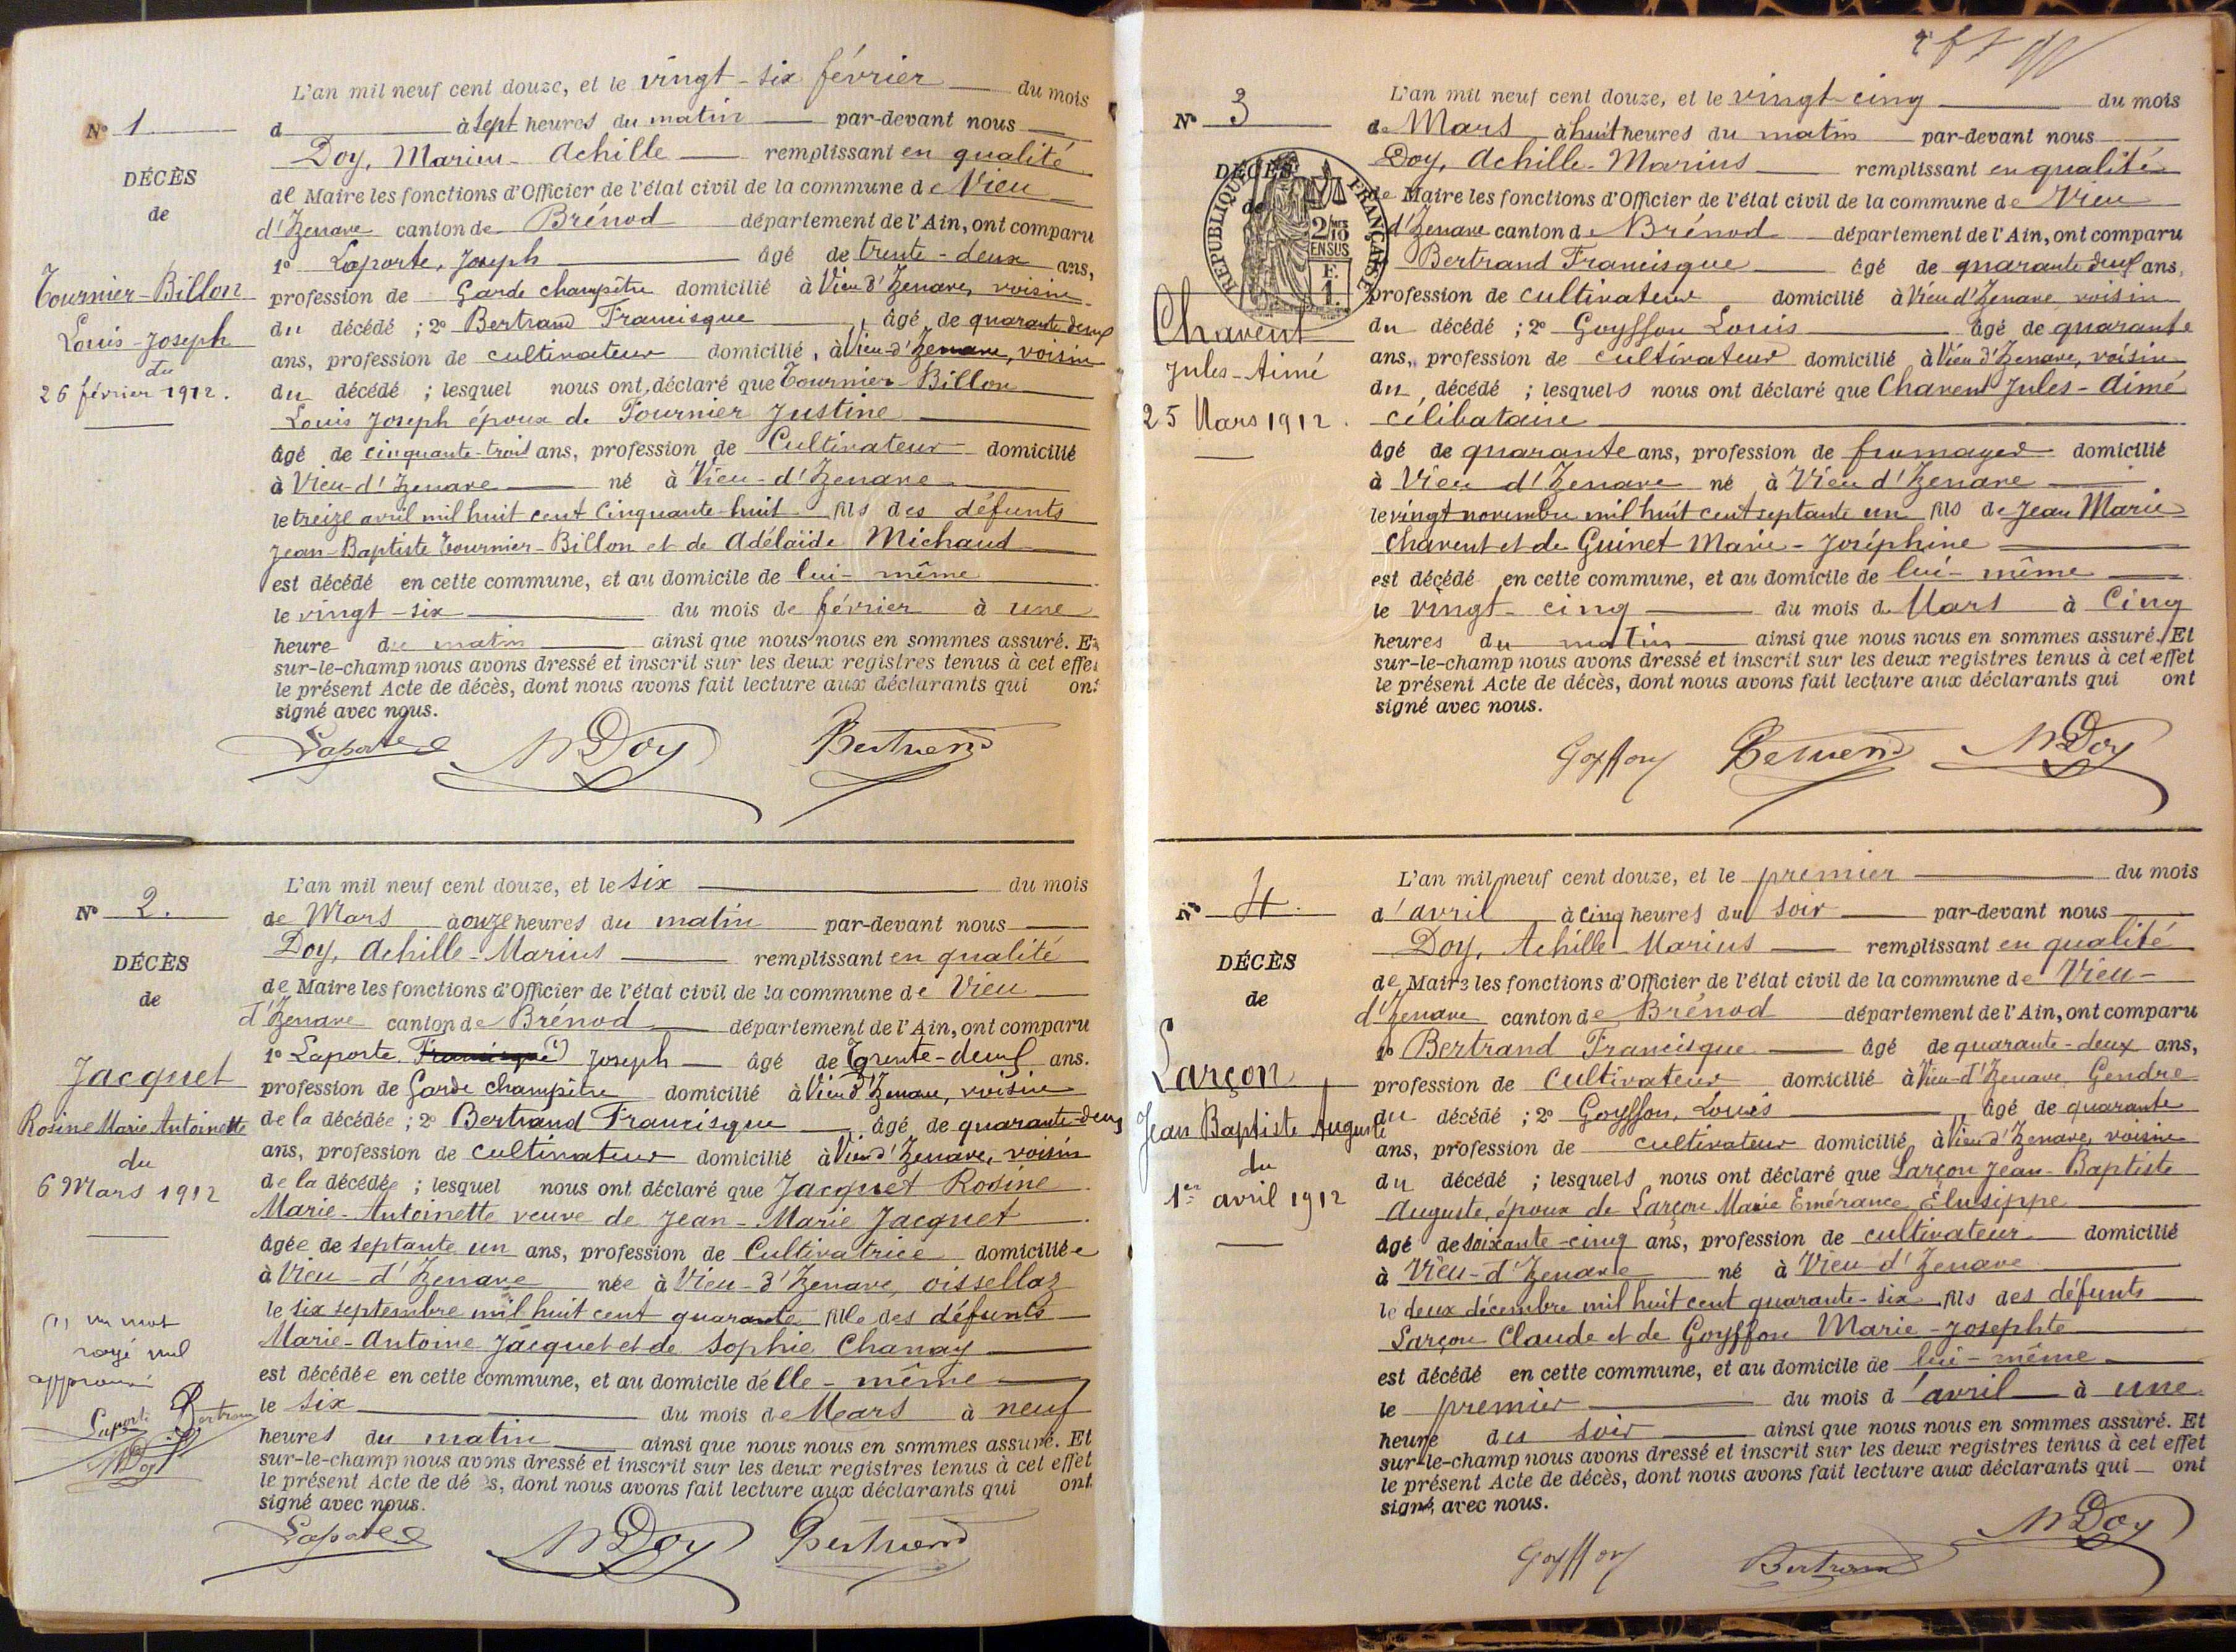 N° 1
DÉCÈS
de
Tournier-Billon
Louis-Joseph
du
26 février 1912.
L'an mil neuf cent douze, et le vingt-six février du mois
d à sept heures du matin par-devant nous
Doy, Marius-Achille remplissant en qualité
de Maire les fonctions d'Officier de l'état civil de la commune de Vieu
d'Izenave canton de Brénod département de l'Ain, ont comparu
1° Laporte, Joseph âgé de trente-deux ans,
profession de Garde champêtre domicilié à Vieu d'Izenave, voisin
du décédé ; 2° Bertrand Francisque, âgé de quarante deux
ans, profession de cultivateur domicilié, à Vieu-d'Izenave, voisin
du décédé ; lesquel nous ont déclaré que Tournier-Billon
Louis Joseph époux de Tournier Justine
âgé de cinquante-trois ans, profession de Cultivateur domicilié
à Vieu-d'Izenave né à Vieu-d'Izenave
le treize avril mil huit cent cinquante-huit fils des défunts
Jean-Baptiste Tournier-Billon et de Adélaïde Michaud
est décédé en cette commune, et au domicile de lui-même
le vingt-six du mois de février à une
heure du matin ainsi que nous nous en sommes assuré. Et
sur-le-champ nous avons dressé et inscrit sur les deux registres tenus à cet effet
le présent Acte de décès, dont nous avons fait lecture aux déclarants qui ont
signé avec nous.
Laporte MDoy Bertrand
N° 2.
DÉCÈS
de
Jacquet
Rosine Marie Antoinette
du
6 Mars 1912
(1) un mot
rayé nul
approuvé
Laporte Bertrand
MDoy
L'an mil neuf cent douze, et le six du mois
de Mars à onze heures du matin par-devant nous
Doy, Achille-Marius remplissant en qualité
de Maire les fonctions d'Officier de l'état civil de la commune de Vieu
d'Izenave canton de Brénod département de l'Ain, ont comparu
1° Laporte Francisque (1) Joseph âgé de Trente-deux ans.
profession de Garde champêtre domicilié à Vieu d'Izenave, voisin
de la décédée ; 2° Bertrand Francisque âgé de quarante-deux
ans, profession de cultivateur domicilié à Vieu d'Izenave, voisin
de la décédée ; lesquel nous ont déclaré que Jacquet Rosine
Marie-Antoinette veuve de Jean-Marie Jacquet
âgée de septante un ans, profession de Cultivatrice domiciliée
à Vieu-d'Izenave née à Vieu-d'Izenave, oissellaz
le six septembre mil huit cent quarante fille des défunts
Marie-Antoine Jacquet et de Sophie Chanay
est décédée en cette commune, et au domicile d'elle-même
le six du mois de Mars à neuf
heures du matin ainsi que nous nous en sommes assuré. Et
sur-le-champ nous avons dressé et inscrit sur les deux registres tenus à cet effet
le présent Acte de dé s, dont nous avons fait lecture aux déclarants qui ont
signé avec nous.
Laporte MDoy Bertrand
N° 3
DÉCÈS
de
RÉPUBLIQUE FRANÇAISE
2/10
EN SUS
F.
1.
Charent
Jules-Aimé
25 Mars 1912.
L'an mil neuf cent douze, et le vingt-cinq du mois
de Mars à huit heures du matin par-devant nous
Doy, Achille-Marius remplissant en qualité
de Maire les fonctions d'Officier de l'état civil de la commune de Vieu
d'Izenave canton de Brénod département de l'Ain, ont comparu
Bertrand Francisque âgé de quarante deux ans,
profession de cultivateur domicilié à Vieu d'Izenave voisin
du décédé ; 2° Goyffon Louis âgé de quarante
ans, profession de cultivateur domicilié à Vieu d'Izenave, voisin
du décédé ; lesquels nous ont déclaré que Charent Jules-Aimé
célibataire
âgé de quarante ans, profession de fromager domicilié
à Vieu d'Izenave né à Vieu d'Izenave
le vingt novembre mil huit cent septante un fils de Jean Marie
Charent et de Guinet Marie-Joséphine
est décédé en cette commune, et au domicile de lui-même
le vingt-cinq du mois de Mars à Cinq
heures du matin ainsi que nous nous en sommes assuré. Et
sur-le-champ nous avons dressé et inscrit sur les deux registres tenus à cet effet
le présent Acte de décès, dont nous avons fait lecture aux déclarants qui ont
signé avec nous.
Goyffon Bertrand MDoy
N° 4.
DÉCÈS
de
Larçon
Jean Baptiste Auguste
du
1er avril 1912
L'an mil neuf cent douze, et le premier du mois
d'avril à cinq heures du soir par-devant nous
Doy, Achille Marius remplissant en qualité
de Maire les fonctions d'Officier de l'état civil de la commune de Vieu-
d'Izenave canton de Brénod département de l'Ain, ont comparu
1° Bertrand Francisque âgé de quarante-deux ans,
profession de Cultivateur domicilié à Vieu-d'Izenave Gendre
du décédé ; 2° Goyffon, Louis, âgé de quarante
ans, profession de cultivateur domicilié, à Vieu d'Izenave, voisin
du décédé ; lesquels nous ont déclaré que Larçon Jean-Baptiste
Auguste, époux de Larçon Marie Emérance Elusippe
âgé de soixante-cinq ans, profession de cultivateur domicilié
à Vieu-d'Izenave né à Vieu-d'Izenave
le deux décembre mil huit cent quarante-six fils des défunts
Larçon Claude et de Goyffon Marie-Josephte
est décédé en cette commune, et au domicile de lui-même
le premier du mois d'avril à une
heure du soir ainsi que nous nous en sommes assuré. Et
sur-le-champ nous avons dressé et inscrit sur les deux registres tenus à cet effet
le présent Acte de décès, dont nous avons fait lecture aux déclarants qui ont
signé avec nous.
Goyffon Bertrand MDoy